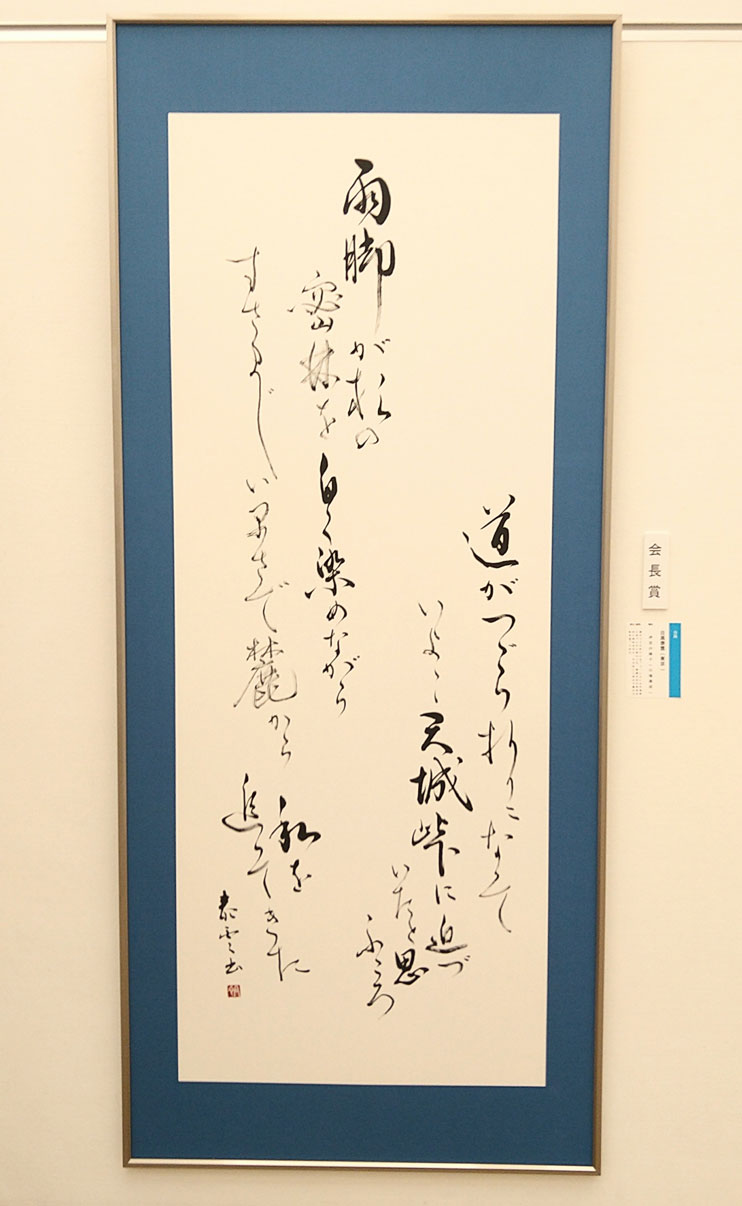 道がつづら折りになって
いよ〱天城峠に近づ
いたと思
ふころ
雨脚が杉の
密林を白く染めながら
すさまじい早さで麓から
私を
追ってきた
泰雲書
会長賞